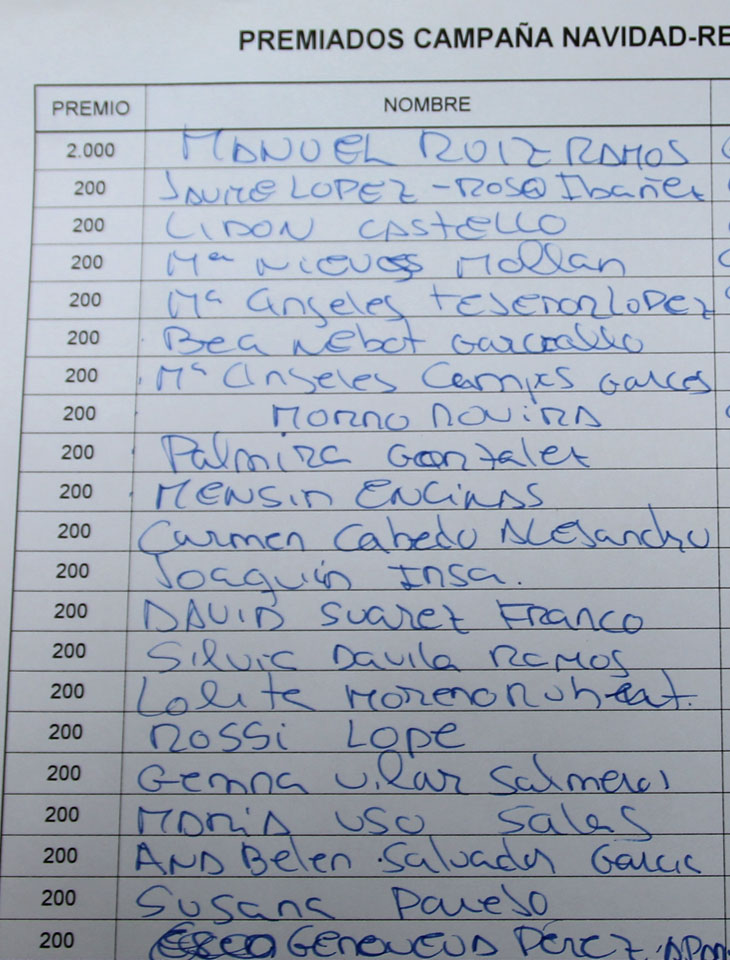 PREMIADOS CAMPAÑA NAVIDAD-RE
PREMIO NOMBRE
2.000 MANUEL RUIZ RAMOS
200 JAUME LOPEZ-ROSO Ibañez
200 LIDON CASTELLO
200 Mª NIEVES Mollan
200 Mª Angeles TESEDOR LOPEZ
200 Bea NEbot
200 Mª Angeles Campos Garces
200 ROVIRA
200 Palmira Gonzalez
200 ENCINAS
200 Carmen Cabedo Alejandro
200 Joaquín INSA.
200 DAVID SUAREZ FRANCO
200 SILVIA DAVILA RAMOS
200 Lolita MORENO
200 ROSSI LOPE
200 Gemma Vilar
200 MARIA USO Sales
200 ANA Belen Salvador Garcia
200 SUSANA
200 GENOVEVA PÉREZ